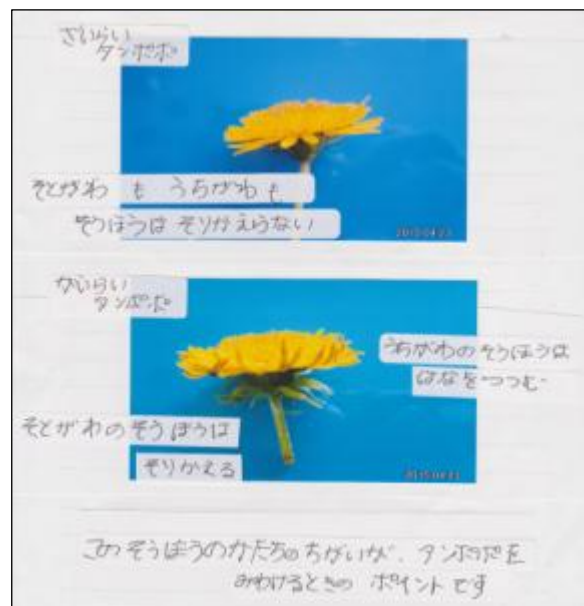 ざいらい
タンポポ
そとがわ も うちがわも
そうほうは そりかえらない
がいらい
タンポポ
うちがわのそうほうは
はなをつつむ
そとがわのそうほうは
そりかえる
このそうほうのかたちのちがいが、タンポポを
みわけるときの ポイントです